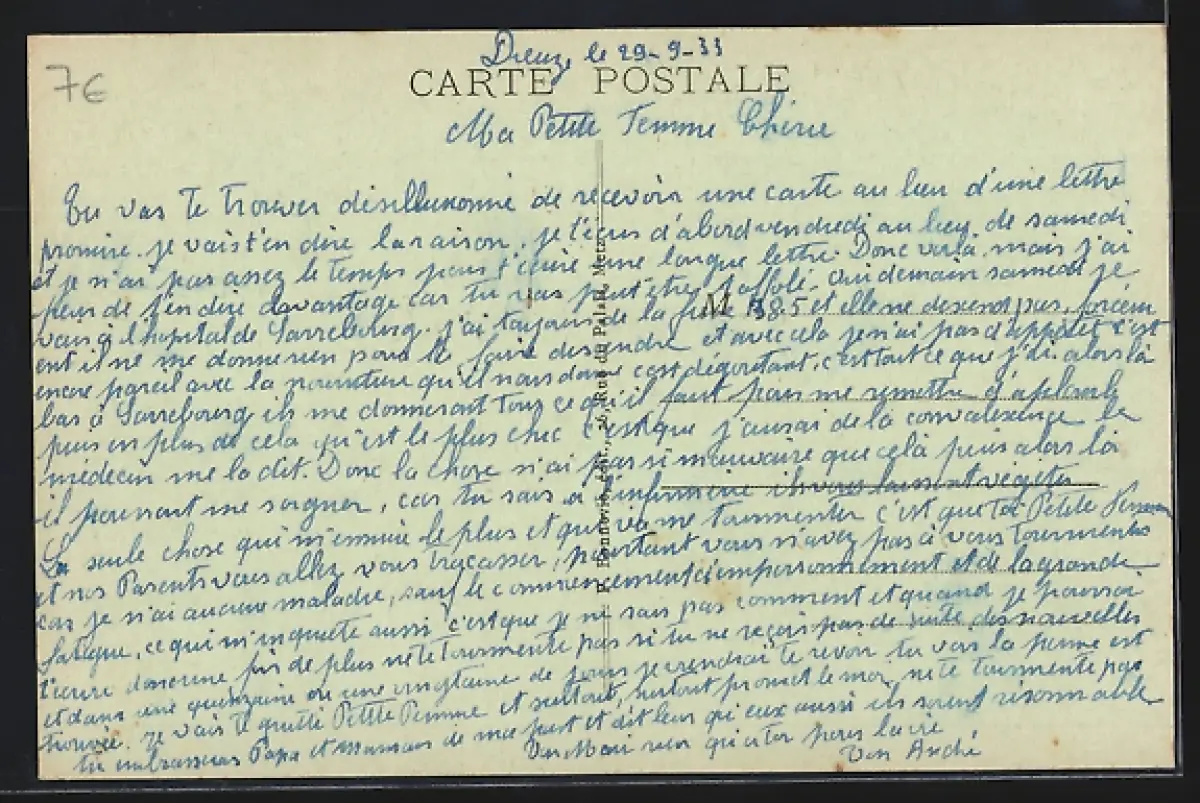 7€
Dieuze le 29-9-33
CARTE POSTALE
Ma Petite Femme Chérie
Tu vas te trouver désillusionné de recevoir une carte au lieu d'une lettre
promise. je vais t'en dire la raison. je t'écris d'abord vendredi au lieu de samedi
et je n'ai pas assez le temps pour t'écrire une longue lettre. Donc voila, mais j'ai
peur de t'en dire davantage car tu vas peut être, Oui demain samedi je
vais à l'hopital de Sarrebourg. j'ai toujours de la fièvre 38.5 et elle ne descend pas, forcem
ent il ne me donne rien pour le faire descendre et avec cela je n'ai pas d'appétit c'est
encore pareil avec la nourriture qu'il nous donne c'est dégoutant, c'est tout ce que j'di. alors là
bas à Sarrebourg ils me donneront tous ce qu'il faut pour me remettre d'aplomb
puis en plus de cela qu'est le plus chic c'est que j'aurai de la convalesence le
médecin me la dit. Donc la chose n'ai pas si mauvaise que celà puis alors là
il pourront me soigner, car tu sais a l'infirmerie ils vous laissent végéter
La seule chose qui m'ennuie le plus et qui va me tourmenter c'est que toi Petite Femme
et nos Parents vous allez vous tracasser, pourtant vous n'avez pas à vous tourmenter
car je n'ai aucune maladie, sauf le commencement d'empoisonnement et de la grande
fatigue, ce qui m'inquiete aussi c'est que je ne sais pas comment et quand je pourrai
t'écrire donc une fois de plus ne te tourmente pas si tu ne reçois pas de suite des nouvelles
et dans une quinzaine ou une vingtaine de jours je viendrai te revoir tu vois la peine est
trouvée. je vais te quitté Petite Femme et surtout, surtout promet le moi, ne te tourmente pas
tu embrasseras Papa et Maman de ma part et dit leur qu'eux aussi ils soient résonnable
Ton Mari qu'a toi pour la vie
Ton André
M
F. Bonnovio, édit., Rue du Palais, Metz